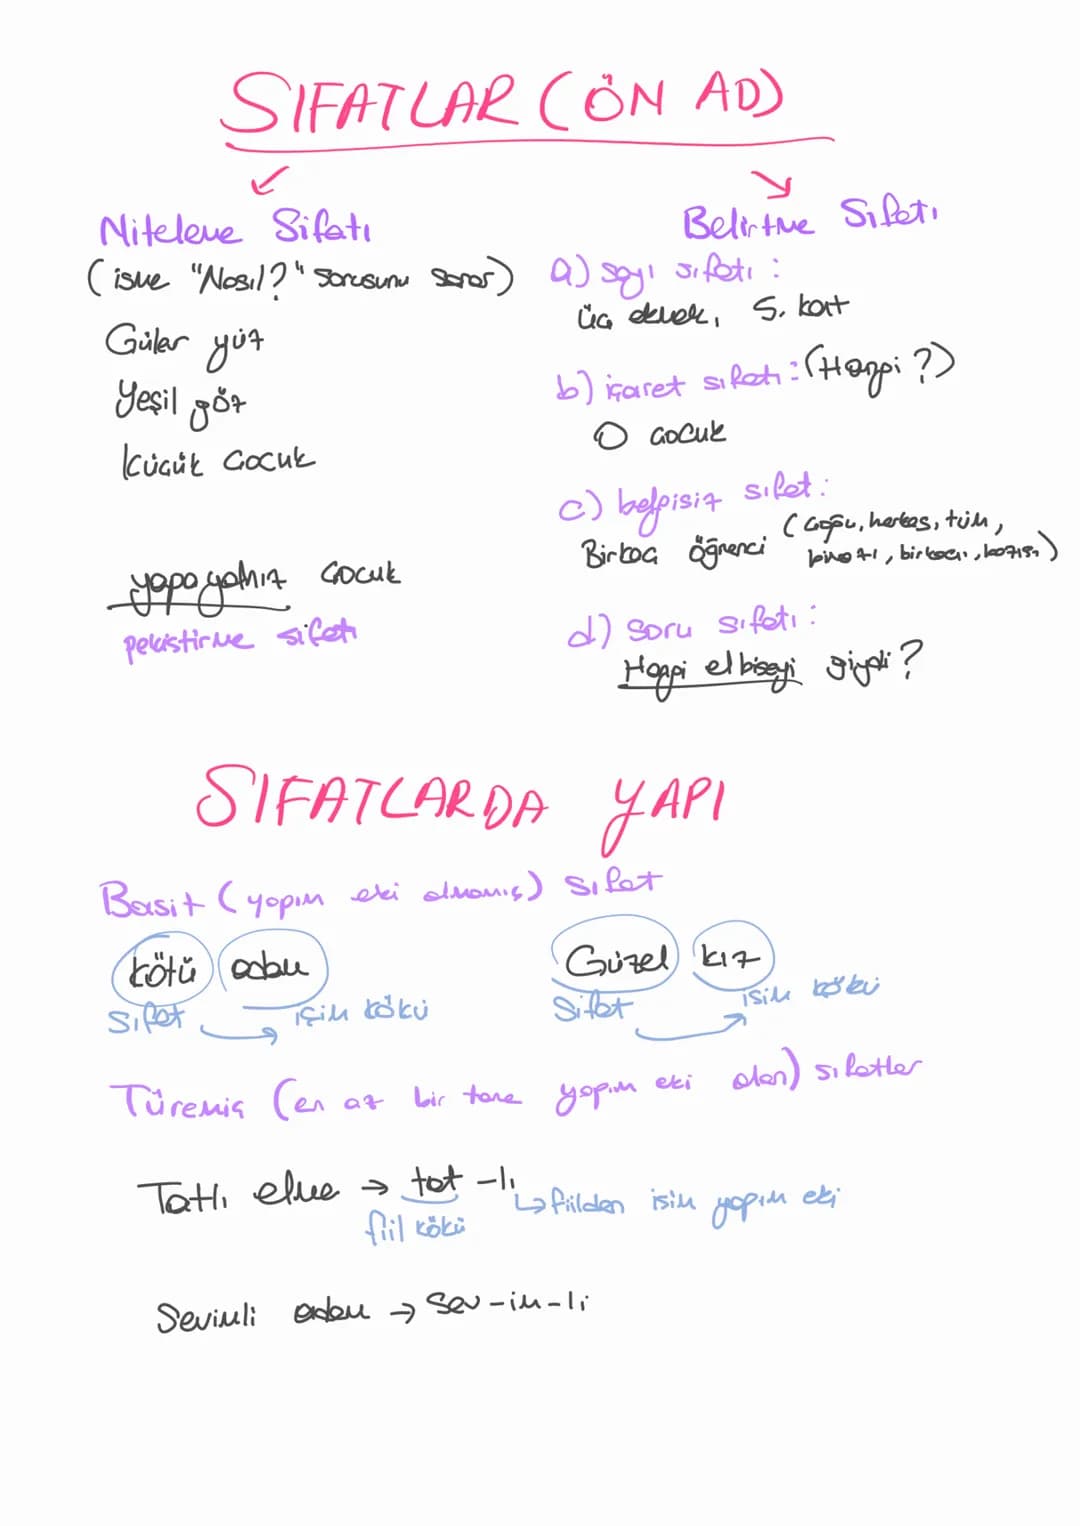 SIFATLAR (ÖN AD)
Niteleme Sıfatı
(isme "Nasıl?" sorusunu sorar)
Güler yüz
Yeşil göz
Küçük Çocuk
yapayalnız Çocuk
pekiştirme sıfatı
Belirtme Sıfatı
a) sayı sıfatı :
üç ekmek, 5. kat
b) işaret sıfatı : (Hangi ?)
O çocuk
c) belgisiz sıfat :
(Çoğu, herkes, tüm,
Birkaç öğrenci
biraz, birkaçı,
d) soru sıfatı :
Hangi elbiseyi giydi ?
SIFATLARDA YAPI
Basit (yapım eki almamış) sıfat
kötü adam
Sıfat isim kökü
Güzel kız
Sıfat isim kökü
Türemiş (en az bir tane yapım eki alan) sıfatlar
Tatlı elma → tat -lı
fiil kökü ↳ fiilden isim yapım eki
Sevimli adam → Sev-im-li